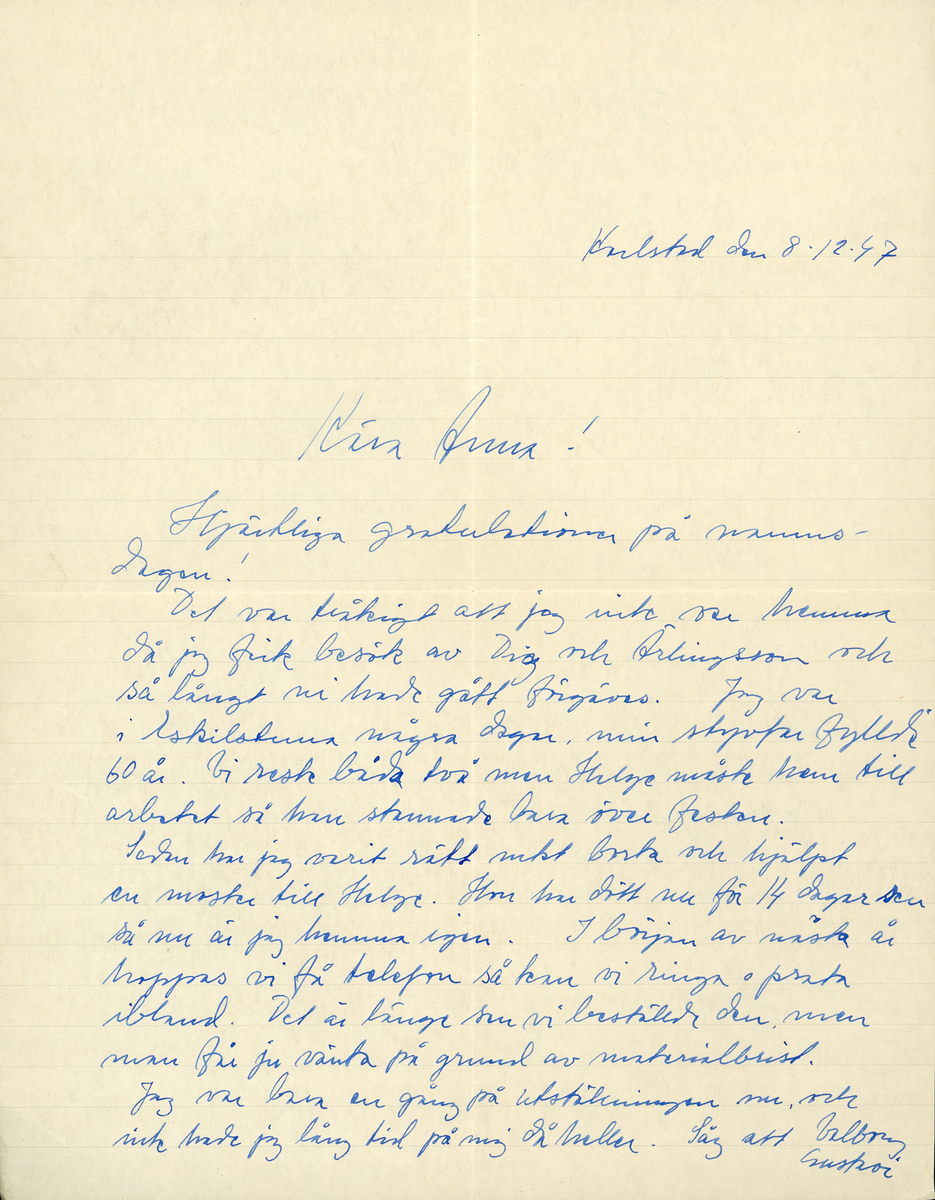 Karlstad den 8.12.47
Kära Anna!
Hjärtliga gratulationer på namns-
dagen!
Det var tråkigt att jag inte var hemma
då jag fick besök av Dig och Erlingsson och
så långt ni hade gått förgäves. Jag var
i Eskilstuna några dagar, min styvfar fyllde
60 år. Vi reste båda två men Helge måste hem till
arbetet så han stannade bara över festen.
Sedan har jag varit rätt mkt borta och hjälpt
en moster till Helge. Hon har dött nu för 14 dagar sen
så nu är jag hemma igen. I början av nästa år
hoppas vi få telefon så kan vi ringa o prata
ibland. Det är länge sen vi beställde den, men
man får ju vänta på grund av materialbrist.
Jag var bara en gång på utställningen nu, och
inte hade jag lång tid på mig då heller. Såg att Valborg